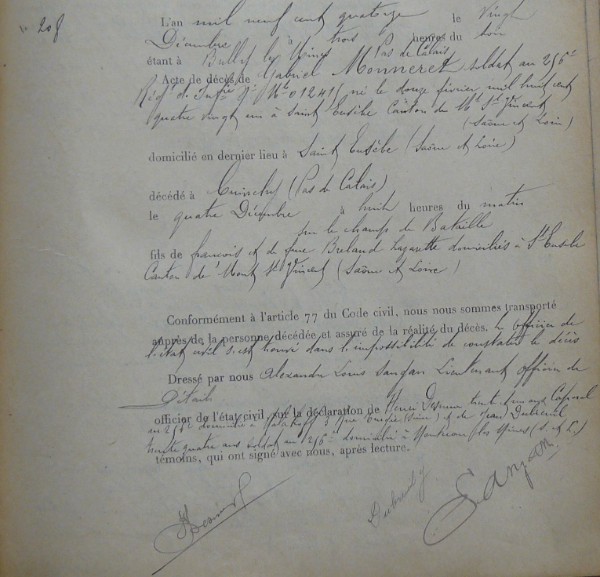 208
L'an mil neuf cent quatorze le Vingt
Décembre à trois heures du soir
étant à Bully les Mines Pas de Calais
Acte de décès de Gabriel Monneret soldat au 256e
Régt d'Infrie No Mle 01241 né le douze février mil huit cent
quatre vingt un à Saint Eusèbe Canton du Mt St Vincent
(Saône et Loire)
domicilié en dernier lieu à Saint Eusèbe (Saône et Loire)
décédé à Cuinchy (Pas de Calais)
le quatre Décembre à huit heures du matin
sur le champs de Bataille
fils de francois et de feue Breland Lazarette domiciliés à St Eusèbe
Canton de Mont St Vincent (Saône et Loire)
Conformément à l'article 77 du Code civil, nous nous sommes transporté
auprès de la personne décédée et assuré de la réalité du décès. L'officier de
l'état civil s'est trouvé dans l'impossibilité de constater le décès
Dressé par nous Alexandre Louis Sanjan Lieutenant officier de
Détail
officier de l'état civil, sur la déclaration de Henri trente ans Caporal
au 256e domicilié à Malakoff 3 Rue et de Jean Dubreuil
trente quatre ans soldat au 256e domicilié à Montceau les Mines (S. et L.)
témoins, qui ont signé avec nous, après lecture.
Dubreuil J Sanjan